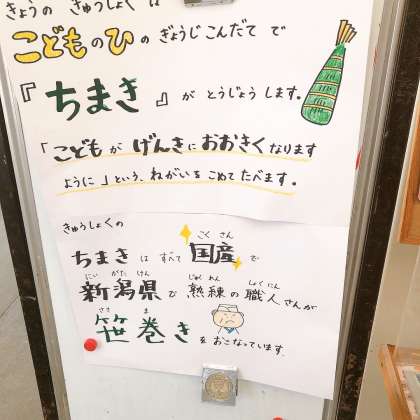 きょうの きゅうしょく は
こどものひ の ぎょうじ こんだて で
『ちまき』が とうじょう します。
「こどもが げんきに おおきく なります
ように」という、ねがいを こめて たべます。
きゅうしょくの
ちまき は すべて 国産 で
こく さん
新潟県 で 熟練の 職人 さんが
にい がた けん じゅく れん しょく にん
笹巻き を おこなっています。
ささ ま